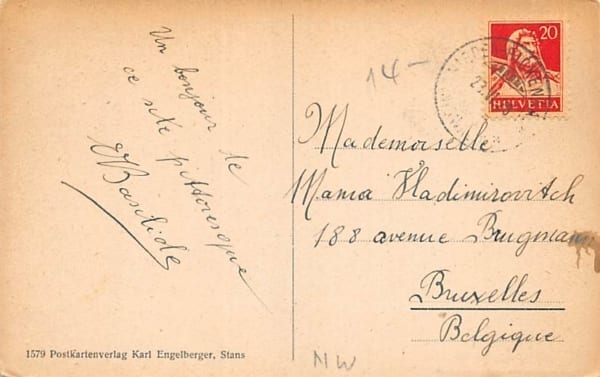 Un bonjour de
ce site pittoresque
Basilide
14-
20
HELVETIA
Mademoiselle
Mania Vladimirovitch
188 avenue Brugmann
Bruxelles
Belgique
1579 Postkartenverlag Karl Engelberger, Stans
NW